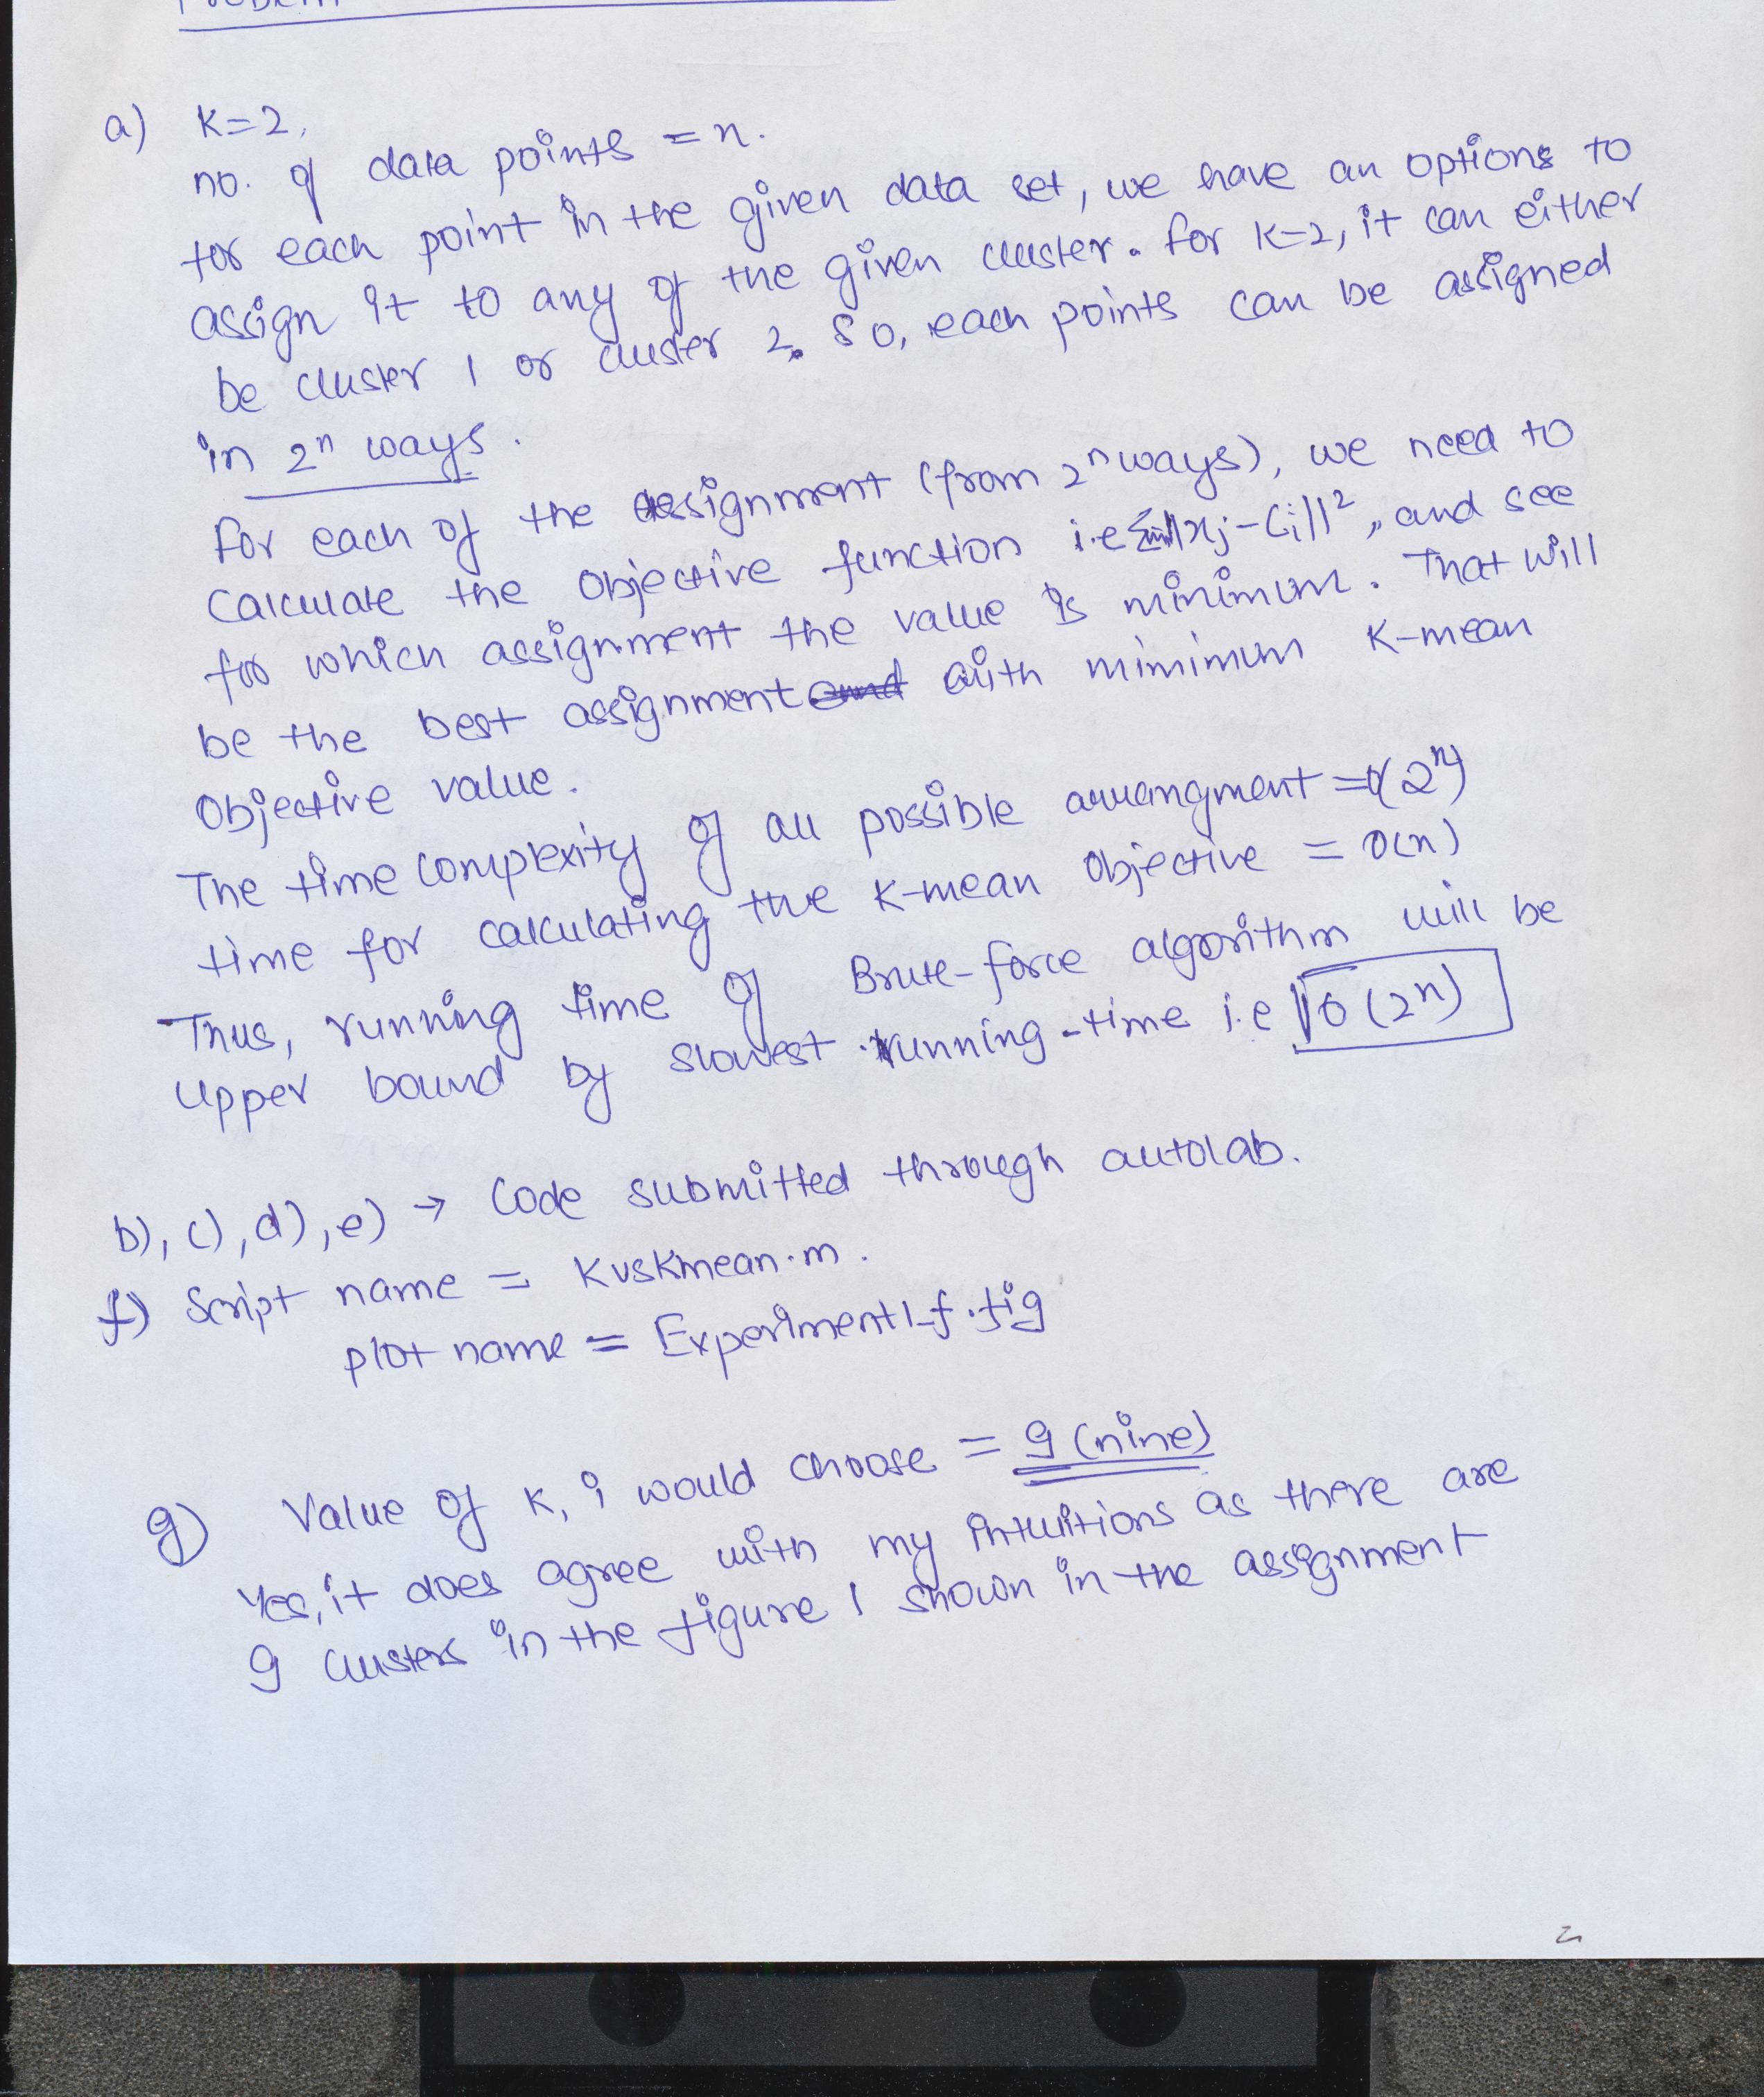 a) K=2,
no. of data points = n.
for each point in the given data set, we have an options to
assign it to any of the given cluster. for K=2, it can either
be cluster 1 or cluster 2. So, each points can be assigned
in 2ⁿ ways.
for each of the assignment (from 2ⁿ ways), we need to
Calculate the objective function i.e Σ||xj-Ci||², and see
for which assignment the value is minimum. That will
be the best assignment with minimum K-mean
Objective value.
The time complexity of all possible arrangment = O(2ⁿ)
time for calculating the K-mean objective = O(n)
Thus, running time of Brute-force algorithm will be
Upper bound by slowest running-time i.e O(2ⁿ)
b), c), d), e) → Code submitted through autolab.
f) Script name = KvsKmean.m.
plot name = Experiment1_f.fig
g) Value of K, i would choose = 9 (nine)
Yes, it does agree with my intuitions as there are
9 clusters in the figure 1 shown in the assignment
2